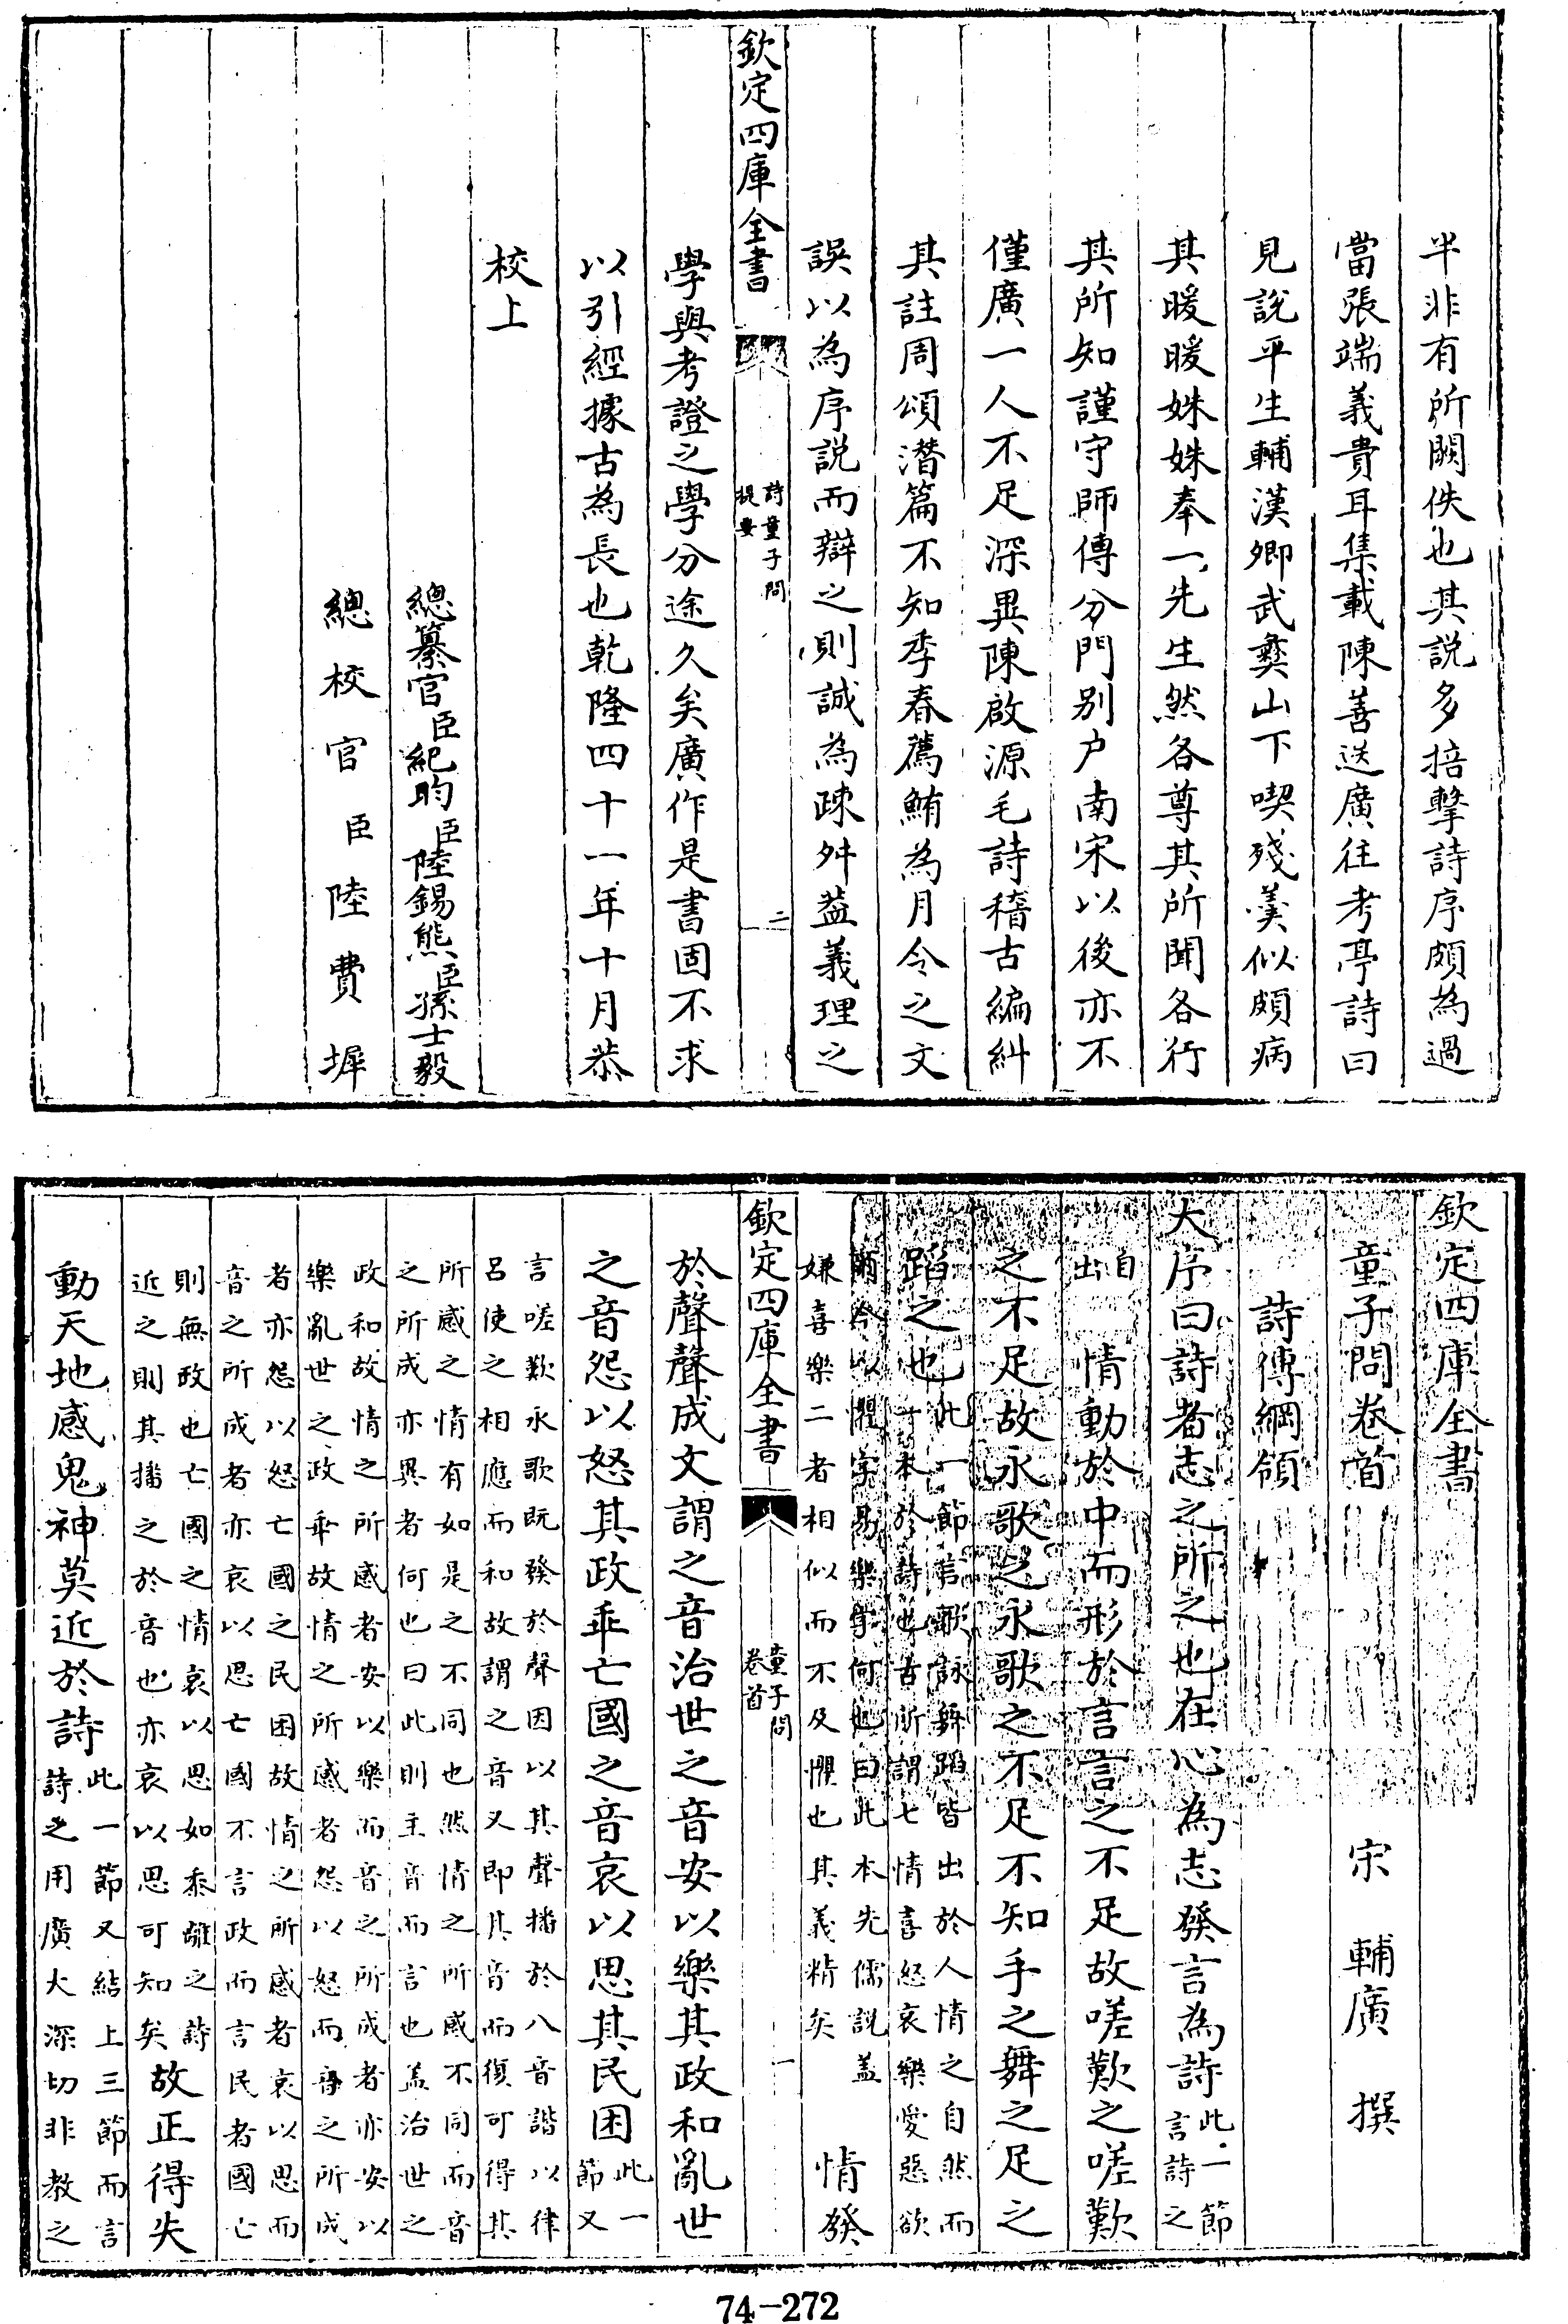 半非有所闕佚也其說多掊擊詩序頗為過
當張端義貴耳集載陳善送廣往考亭詩曰
見說平生輔漢卿武彝山下喫殘羮似頗病
其暖暖姝姝奉一先生然各尊其所聞各行
其所知謹守師傳分門别户南宋以後亦不
僅廣一人不足深異陳啟源毛詩稽古編糾
其註周頌潛篇不知季春薦鮪為月令之文
誤以為序說而辯之則誠為疎舛葢義理之
欽定四庫全書
詩童子問
提要
二
學與考證之學分途久矣廣作是書固不求
以引經據古為長也乾隆四十一年十月恭
校上
總纂官臣紀昀臣陸錫熊臣孫士毅
總校官臣陸費墀
欽定四庫全書
童子問卷首
宋 輔廣 撰
詩傳綱領
大序曰詩者志之所之也在心為志發言為詩此一節
言詩之
自
出
情動於中而形於言言之不足故嗟歎之嗟歎
之不足故永歌之永歌之不足不知手之舞之足之
蹈之也此一節言歌詠舞蹈皆出於人情之自然而
本於詩也古所謂七情喜怒哀樂愛惡欲
爾今以懼字易樂字何也曰此本先儒說盖
嫌喜樂二者相似而不及懼也其義精矣
情發
欽定四庫全書
童子問
卷首
一
於聲聲成文謂之音治世之音安以樂其政和亂世
之音怨以怒其政乖亡國之音哀以思其民困此一
節又
言嗟歎永歌既發於聲因以其聲播於八音諧以律
呂使之相應而和故謂之音又即其音而復可得其
所感之情有如是之不同也然情之所感不同而音
之所成亦異者何也曰此則主音而言也盖治世之
政和故情之所感者安以樂而音之所成者亦安以
樂亂世之政乖故情之所感者怨以怒而音之所成
者亦怨以怒亡國之民困故情之所感者哀以思而
音之所成者亦哀以思亡國不言政而言民者國亡
則無政也亡國之情哀以思如黍離之詩
近之則其播之於音也亦哀以思可知矣
故正得失
動天地感鬼神莫近於詩此一節又結上三節而言
詩之用廣大深切非教之
74-272